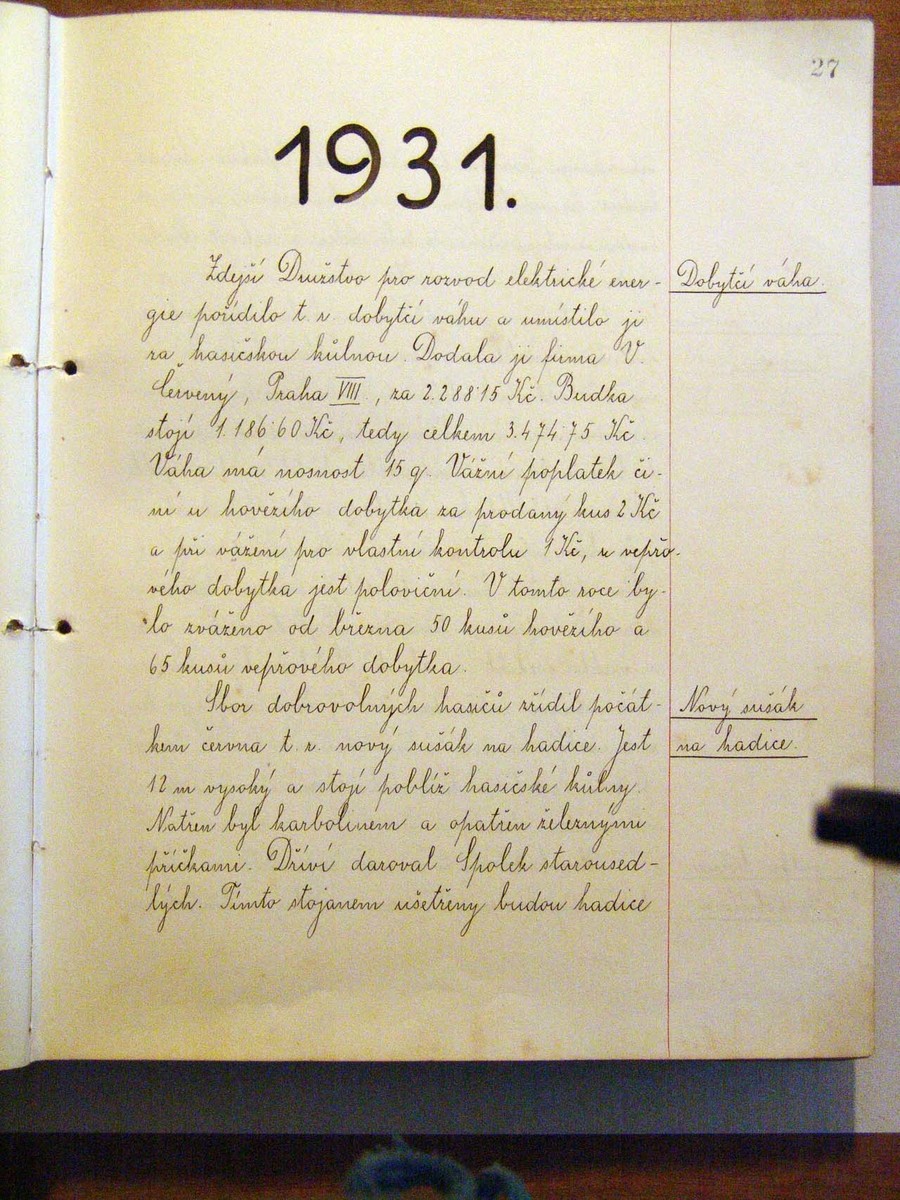 27
1931.
Zdejší Družstvo pro rozvod elektrické ener-
Dobytčí váha.
gie pořídilo t. r. dobytčí váhu a umístilo ji
za hasičskou kůlnou. Dodala ji firma V.
Červený, Praha VIII, za 2.288·15 Kč. Budka
stojí 1.186·60 Kč, tedy celkem 3.474·75 Kč.
Váha má nosnost 15 q. Vážní poplatek či-
ní u hovězího dobytka za prodaný kus 2 Kč
a při vážení pro vlastní kontrolu 1 Kč, u vepřo-
vého dobytka jest poloviční. V tomto roce by-
lo zváženo od března 50 kusů hovězího a
65 kusů vepřového dobytka.
Sbor dobrovolných hasičů zřídil počát-
Nový sušák
kem června t. r. nový sušák na hadice. Jest
na hadice.
12 m vysoký a stojí poblíž hasičské kůlny.
Natřen byl karbolinem a opatřen železnými
příčkami. Dříví daroval Spolek starousedl-
lých. Tímto stojanem ušetřeny budou hadice